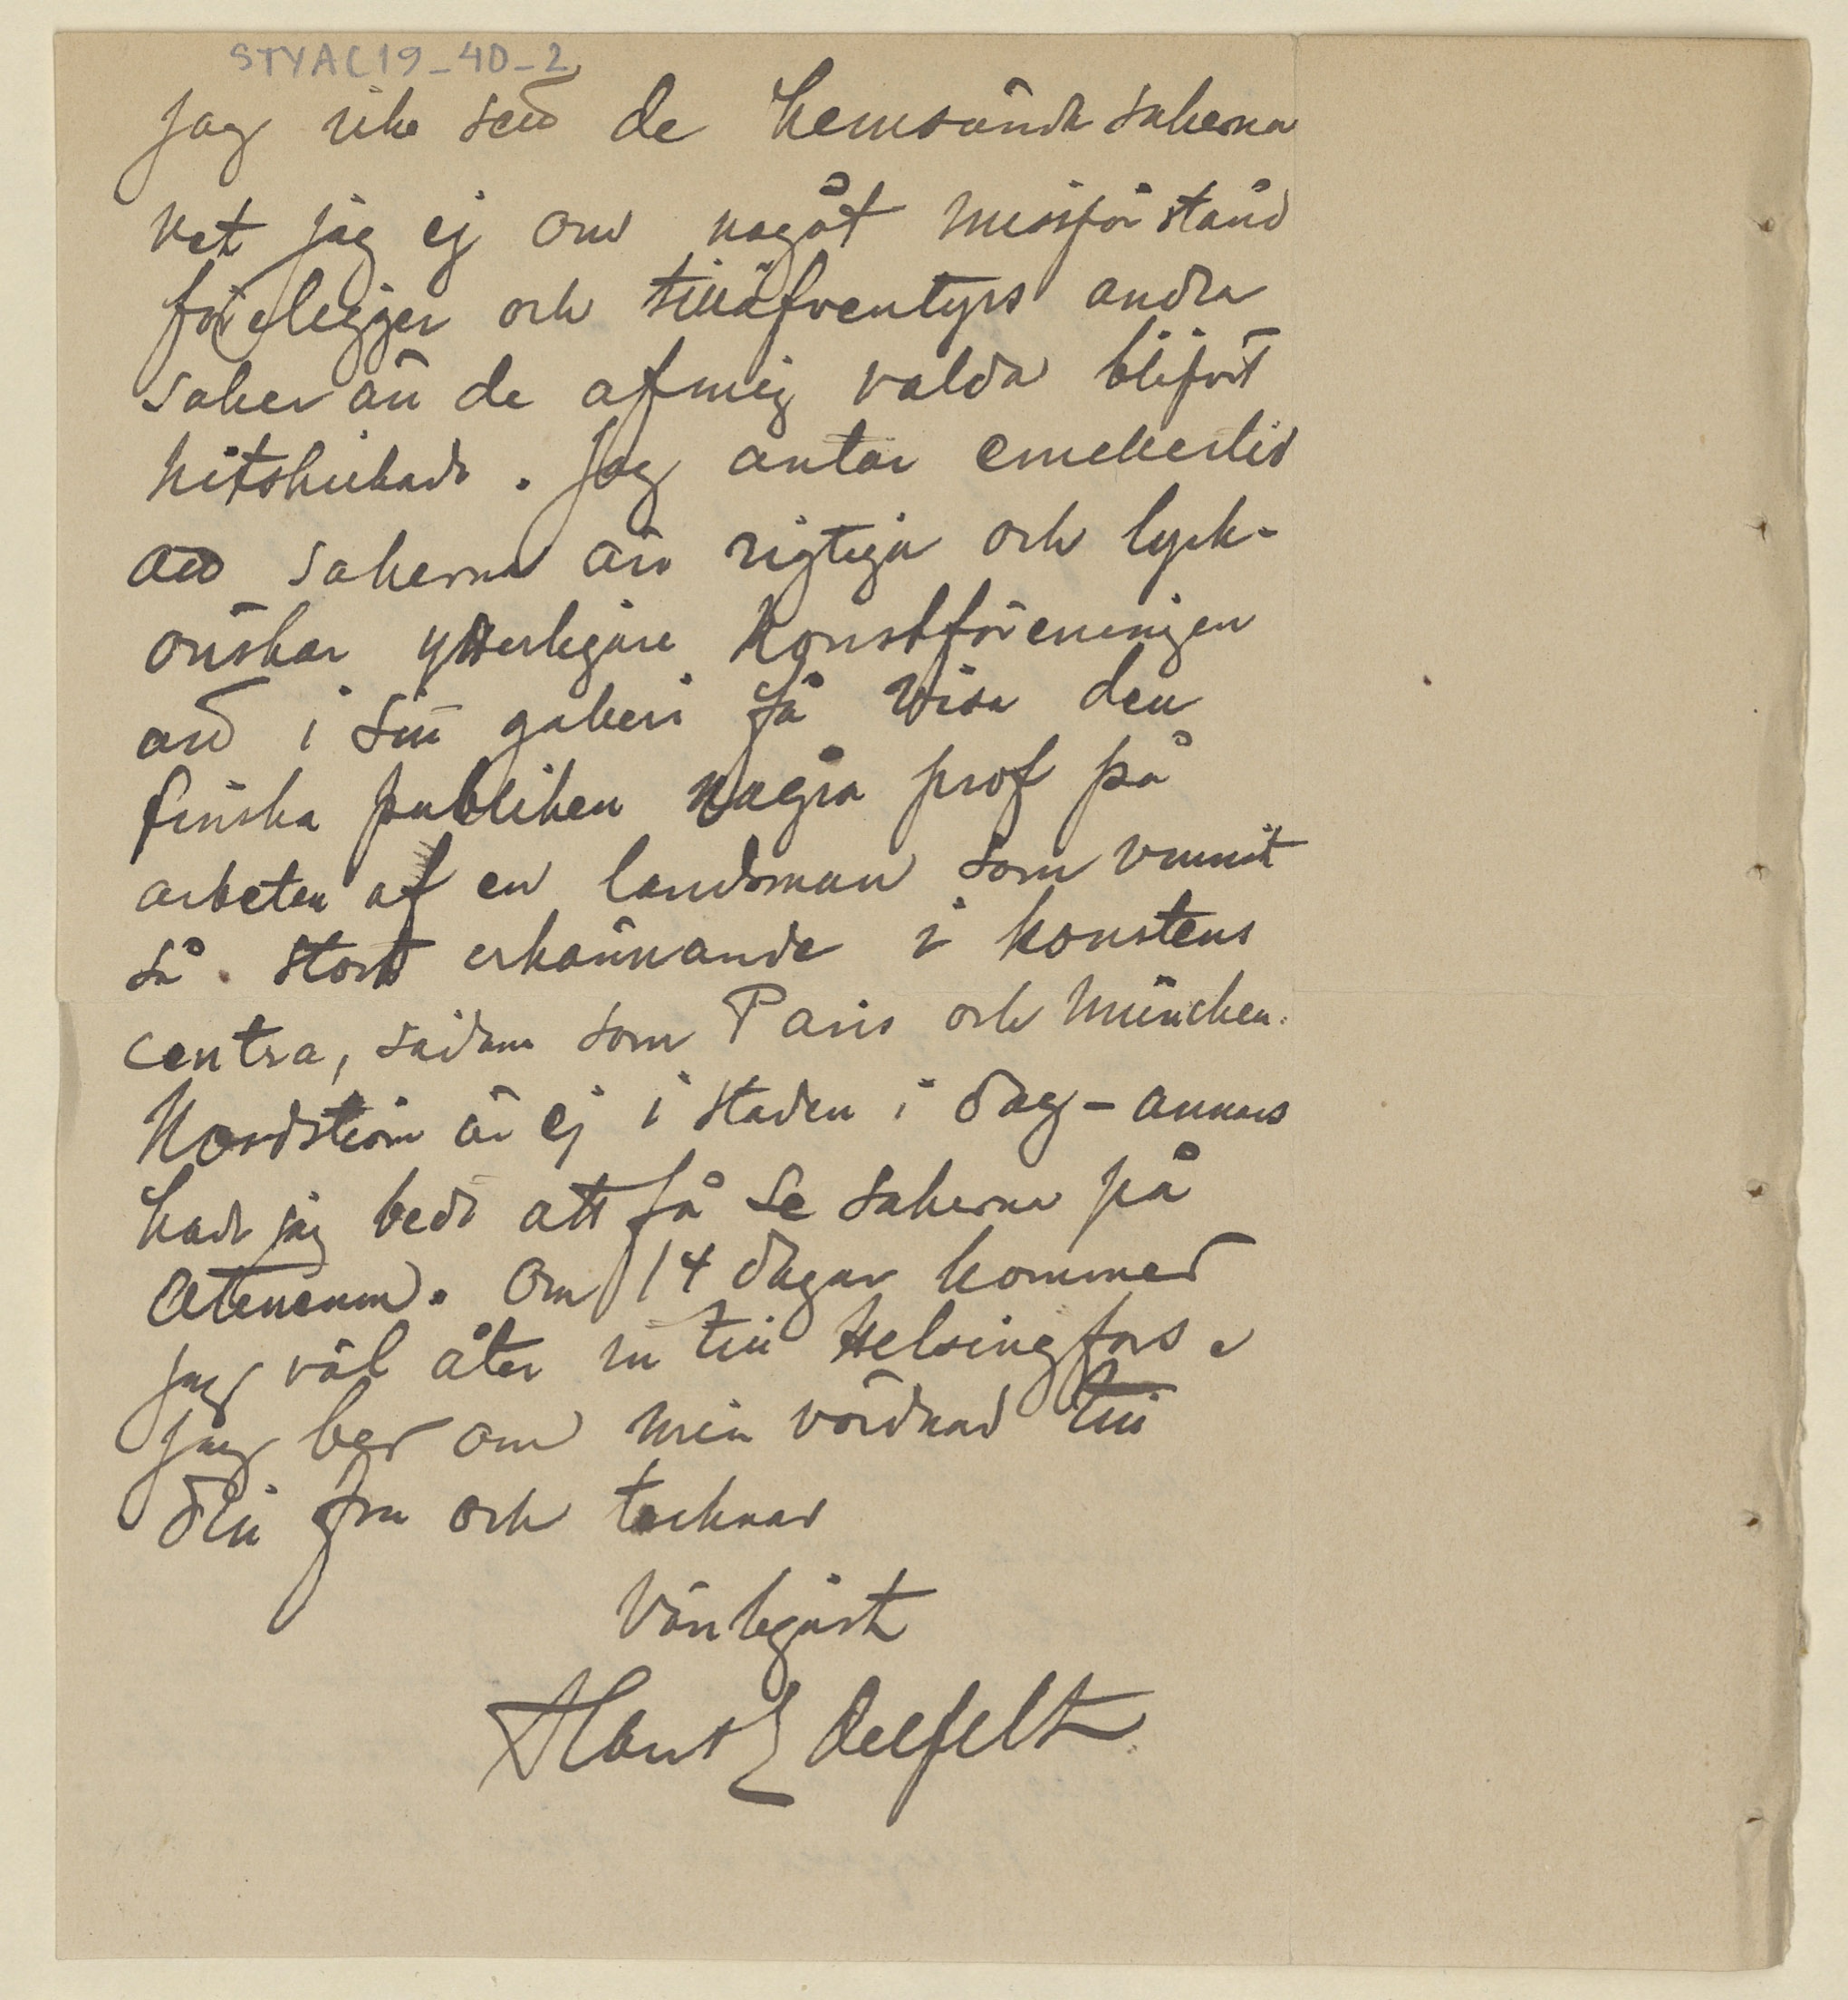 STYAC19_40_2
jag icke sett de hemsända sakerna
vet jag ej om något missförstånd
föreligger och tilläfventyrs andra
saker än de af mig valda blifvit
hitskickade. Jag antar emellertid
att sakerna äro rigtiga och lyck-
önskar ytterligare Konstföreningen
att i sitt galleri få visa den
finska publiken några prof på
arbeten af en landsman som vunnit
så stort erkännande i konstens
centra, sådana som Paris och München.
Nordström är ej i staden i dag – annars
hade jag bedt att få se sakerna på
Ateneum. Om 14 dagar kommer
jag väl åter in till Helsingfors.
Jag ber om min vördnad till
din fru och tecknar
Vänligast
Edelfelt